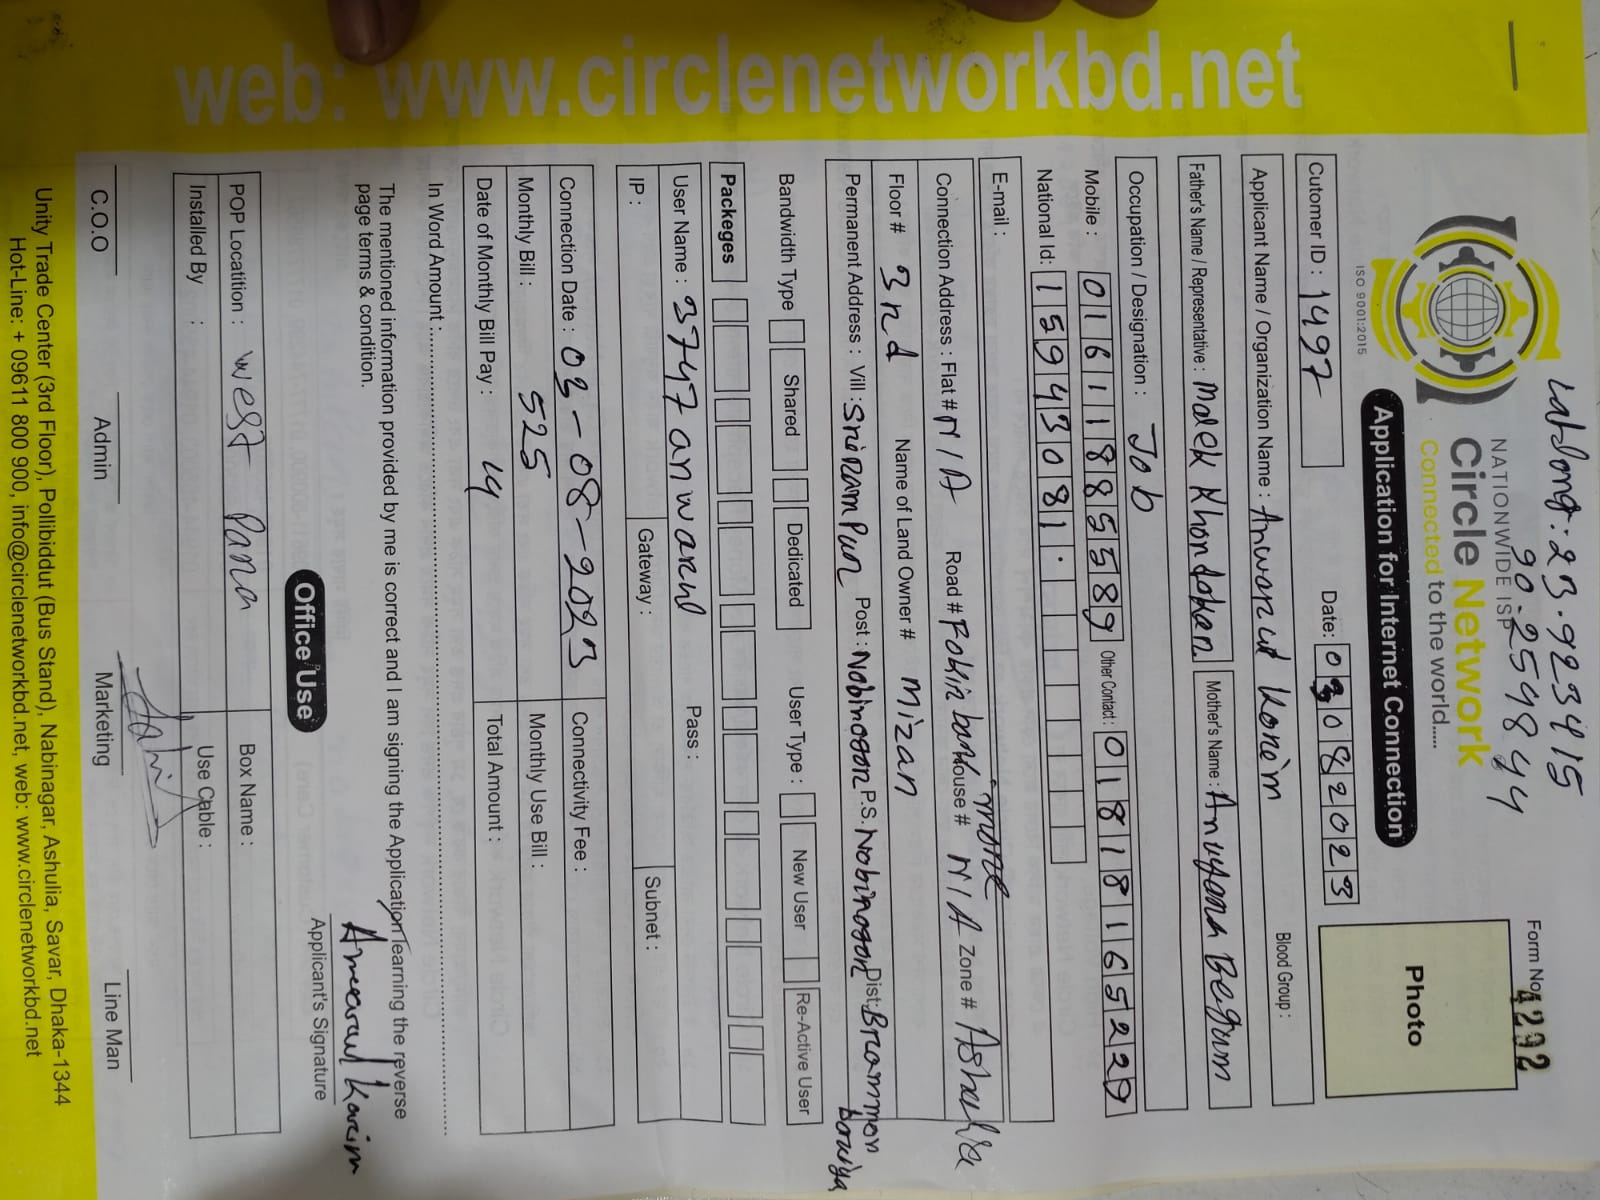 Lat/long. 23.923415
90.254844
Form No. 4292
ISO 9001:2015
NATIONWIDE ISP
Circle Network
Connected to the world.....
Application for Internet Connection
Photo
Cutomer ID : 1497 Date: 03082023
Applicant Name / Organization Name : Anwarul Korim Blood Group :
Father's Name / Representative : Malek Khondokar Mother's Name : Begum
Occupation / Designation : Job
Mobile : 01611885589 Other Contact : 01818165229
National Id: 1594943081
E-mail :
Connection Address : Flat # N/A Road # Fokir House # N/A Zone # Ashulia
Floor # 3rd Name of Land Owner # Mizan
Permanent Address : Vill : SriramPur Post : Nobinogor P.S. Nobinogor Dist: Brammon
bariya
Bandwidth Type Shared Dedicated User Type : New User Re-Active User
Packeges
User Name : 3747anwarul Pass :
IP : Gateway : Subnet :
Connection Date : 03-08-2023 Connectivity Fee :
Monthly Bill : 525 Monthly Use Bill :
Date of Monthly Bill Pay : 4 Total Amount :
In Word Amount :
The mentioned information provided by me is correct and I am signing the Application learning the reverse
page terms & condition.
Anwarul Karim
Applicant's Signature
Office Use
POP Locatition : West Para Box Name :
Installed By : Use Cable :
C.O.O Admin Marketing Line Man
Unity Trade Center (3rd Floor), Pollibiddut (Bus Stand), Nabinagar, Ashulia, Savar, Dhaka-1344
Hot-Line: + 09611 800 900, info@circlenetworkbd.net, web: www.circlenetworkbd.net
web: www.circlenetworkbd.net